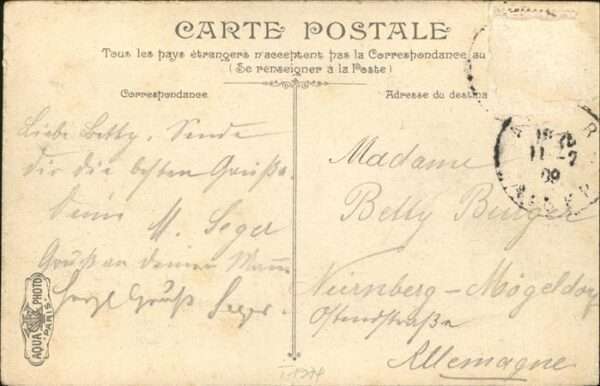 CARTE POSTALE
Tous les pays étrangers n'acceptent pas la Correspondance au
(Se renseigner à la Poste)
Correspondance
Adresse du destina
Liebe Betty. Sende
dir die besten Grüße
Deine M. Seger
Gruß an deinen Mann
Herzl Gruß Seger.
Madame
Betty Burger
Nürnberg-Mögeldorf
Ostendstraße
Allemagne
AQUA PHOTO
PARIS
11-7
09